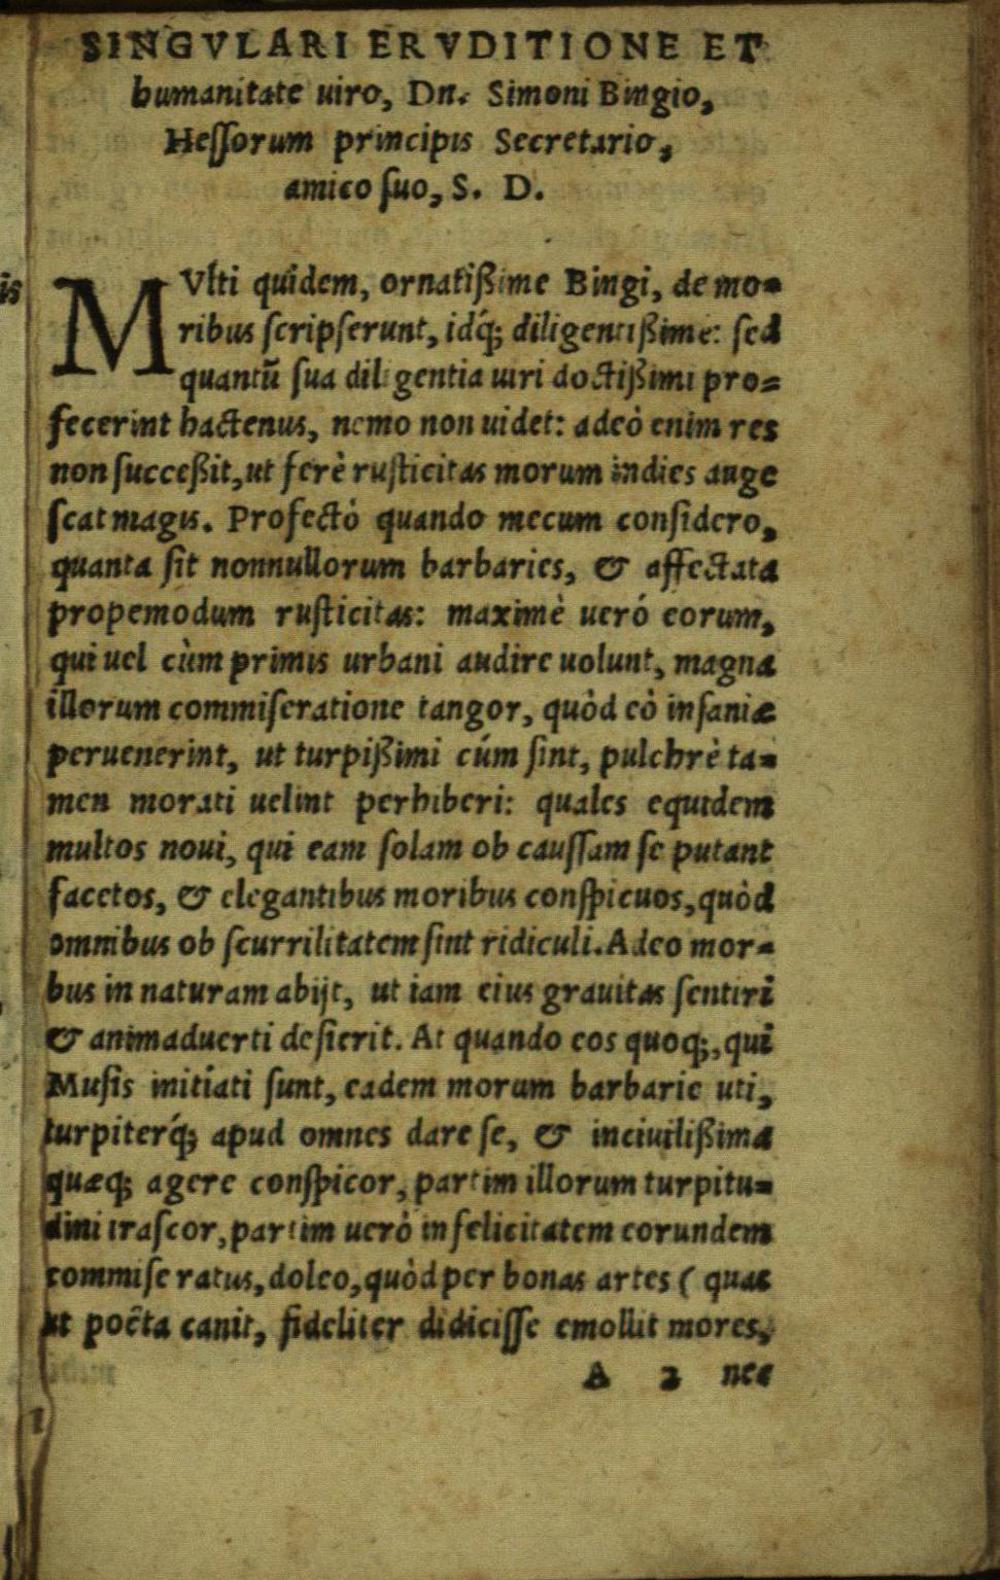 SINGVLARI ERVDITIONE ET
humanitate uiro, Dn. Simoni Bingio,
Heſſorum principis Secretario,
amico ſuo, S. D.
MVlti quidem, ornatiſsime Bingi, de mo-
ribus ſcripſerunt, idq́; diligentiſsime: ſed
quantũ ſua diligentia uiri doctiſsimi pro=
fecerint hactenus, nemo non uidet: adeò enim res
non ſucceſsit, ut ferè ruſticitas morum indies auge
ſcat magis. Profectò quando mecum conſidero,
quanta ſit nonnullorum barbaries, & affectata
propemodum ruſticitas: maximè ueró eorum,
qui uel cùm primis urbani audire uolunt, magna
illorum commiſeratione tangor, quòd eò inſaniæ
peruenerint, ut turpiſsimi cúm ſint, pulchrè ta-
men morati uelint perhiberi: quales equidem
multos noui, qui eam ſolam ob cauſſam ſe putant
facetos, & elegantibus moribus conſpicuos, quòd
omnibus ob ſcurrilitatem ſint ridiculi. Adeo mor-
bus in naturam abijt, ut iam eius grauitas ſentiri
& animaduerti deſierit. At quando eos quoq;, qui
Muſis initiati ſunt, eadem morum barbarie uti,
turpiterq́; apud omnes dare ſe, & inciuiliſsima
quæq; agere conſpicor, partim illorum turpitu-
dini iraſcor, partim ueró infelicitatem eorundem
commiſeratus, doleo, quòd per bonas artes ( quas
ut poëta canit, fideliter didiciſſe emollit mores,
A 2 nec
is